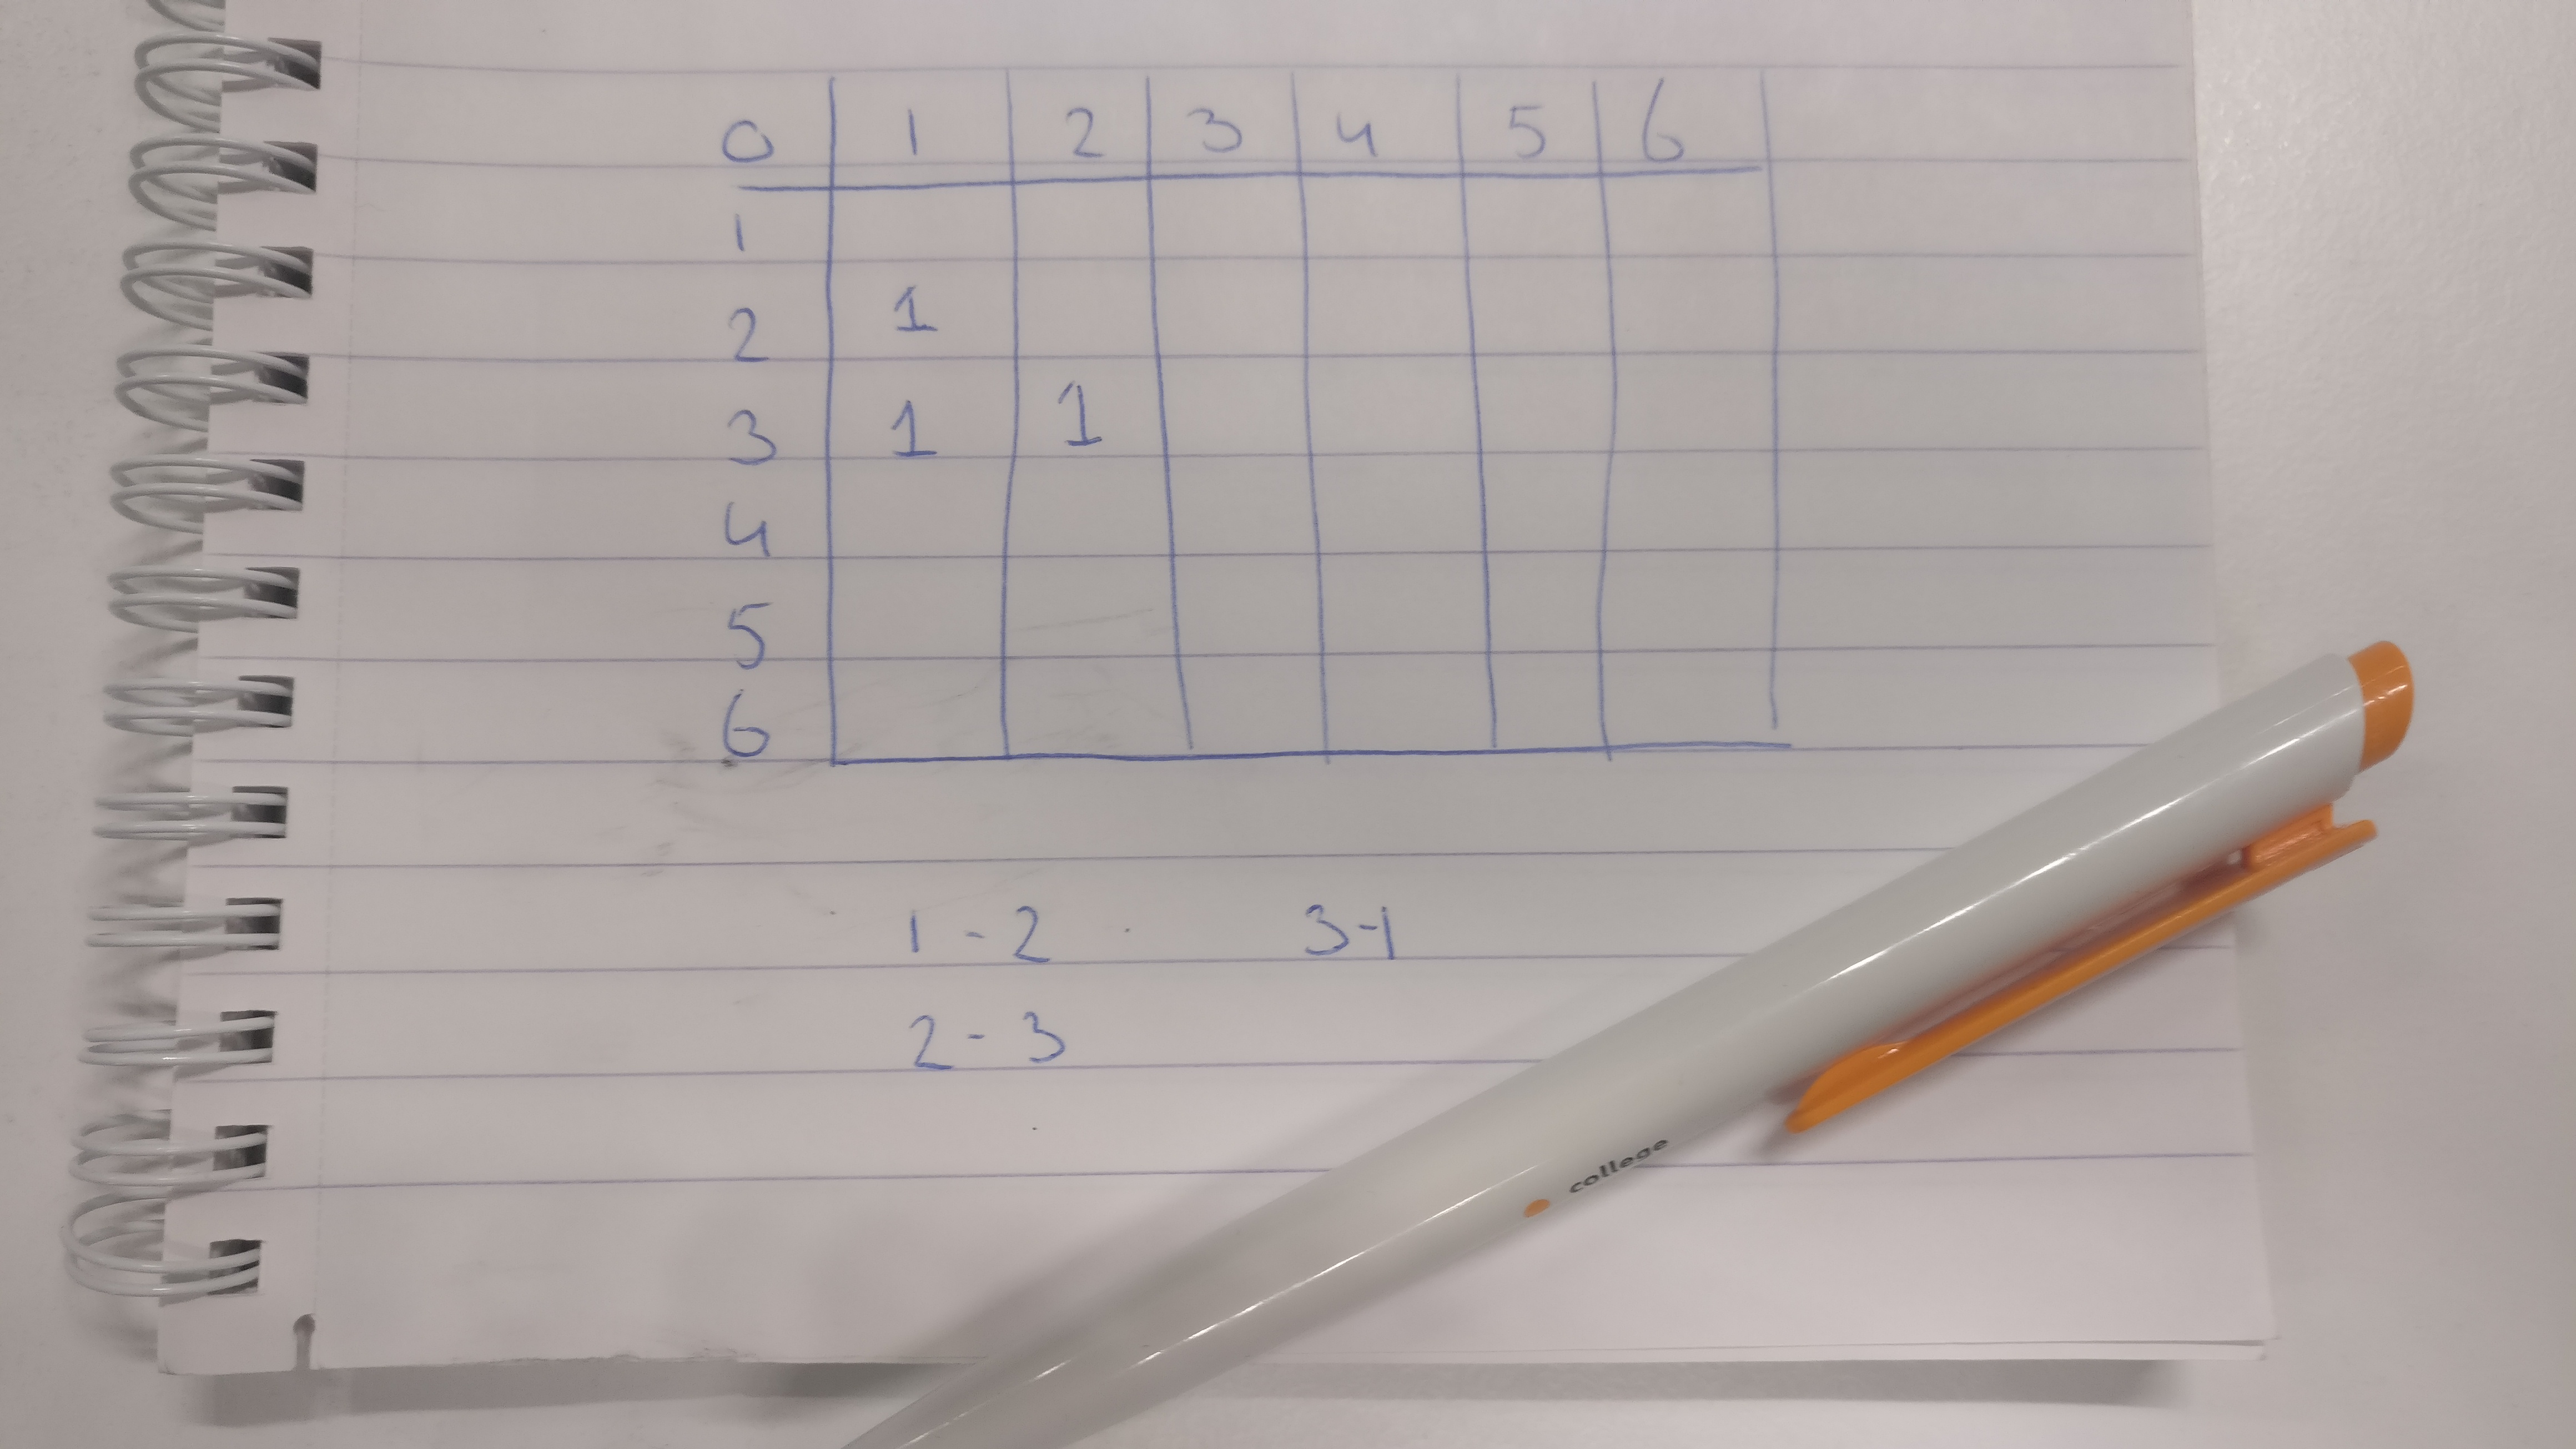 0 1 2 3 4 5 6
1
2 1
3 1 1
4
5
6
1 - 2 3-1
2 - 3
college